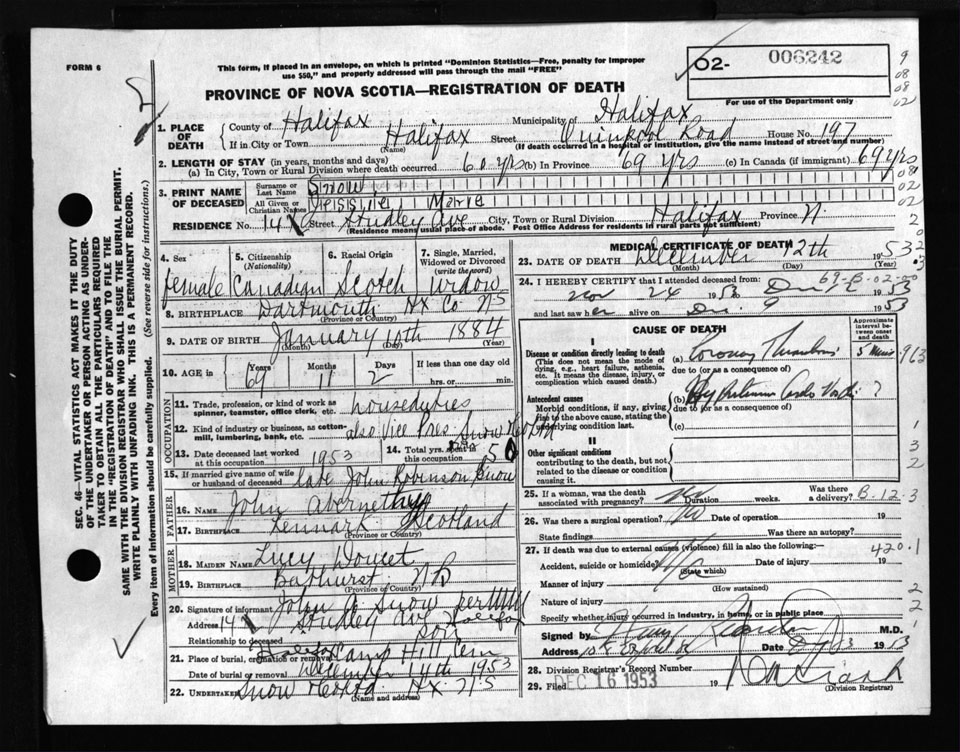 FORM 6
This form, if placed in an envelope, on which is printed "Dominion Statistics—Free, penalty for improper
use $50," and properly addressed will pass through the mail "FREE"
PROVINCE OF NOVA SCOTIA—REGISTRATION OF DEATH
O2- 006242
For use of the Department only
9
08
08
02
1. PLACE OF DEATH
County of Halifax Municipality of Halifax
If in City or Town Halifax Street Quinpool Road House No. 197
(Name) (If death occurred in a hospital or institution, give the name instead of street and number)
2. LENGTH OF STAY (in years, months and days)
(a) In City, Town or Rural Division where death occurred 60 yrs (b) In Province 69 yrs (c) In Canada (if immigrant) 69 yrs
3. PRINT NAME OF DECEASED
Surname or Last Name Snow
All Given or Christian Names Jessie Marie
RESIDENCE No. 14 Street Studley Ave City, Town or Rural Division Halifax Province N.
(Residence means usual place of abode. Post Office Address for residents in rural parts not sufficient)
4. Sex female
5. Citizenship (Nationality) Canadian
6. Racial Origin Scotch
7. Single, Married, Widowed or Divorced (write the word) widow
8. BIRTHPLACE Dartmouth Hx Co NS
(Province or Country)
9. DATE OF BIRTH January 10th 1884
(Month) (Day) (Year)
10. AGE in Years 69 Months 11 Days 2 If less than one day old hrs. or min.
OCCUPATION
11. Trade, profession, or kind of work as spinner, teamster, office clerk, etc. houseduties
12. Kind of industry or business, as cotton-mill, lumbering, bank, etc. also Vice Pres Snow & Co Ltd
13. Date deceased last worked at this occupation 1953
14. Total yrs. spent in this occupation 50
15. If married give name of wife or husband of deceased late John Robinson Snow
FATHER
16. NAME John Abernethy
17. BIRTHPLACE Scotland
(Province or Country)
MOTHER
18. MAIDEN NAME Lucy Doucet
19. BIRTHPLACE Bathurst NB
(Province or Country)
20. Signature of informant John Snow per
Address 14 Studley Ave Halifax
Relationship to deceased son
21. Place of burial, cremation or removal Halifax Camp Hill Cem
Date of burial or removal December 14th 1953
22. UNDERTAKER Snow & Co Ltd Hx N S
(Name and address)
MEDICAL CERTIFICATE OF DEATH
23. DATE OF DEATH December 12th 1953
(Month) (Day) (Year)
24. I HEREBY CERTIFY that I attended deceased from: 69-B-02-00
Nov 24 1953 1953
and last saw her alive on Dec 9 1953
CAUSE OF DEATH
Approximate interval between onset and death
I
Disease or condition directly leading to death
(This does not mean the mode of dying, e.g., heart failure, asthenia, etc. It means the disease, injury, or complication which caused death.)
(a) Coronary Thrombosis 5 Mins 963
due to (or as a consequence)
Antecedent causes
Morbid conditions, if any, giving rise to the above cause, stating the underlying condition last.
(b) Hypertensive Cardio Vasc. ?
due to (or as a consequence)
(c)
II
Other significant conditions
contributing to the death, but not related to the disease or condition causing it.
25. If a woman, was the death associated with pregnancy? No Duration weeks. Was there a delivery? B-12-3
26. Was there a surgical operation? No Date of operation 19
State findings Was there an autopsy?
27. If death was due to external causes (violence) fill in also the following:— 420.1
Accident, suicide or homicide? (State which) Date of injury 19
Manner of injury
(How sustained)
Nature of injury
Specify whether injury occurred in industry, in home, or in public place
Signed by M.D.
Address Date
28. Division Registrar's Record Number
29. Filed DEC 16 1953 19
(Division Registrar)
SEC. 46—VITAL STATISTICS ACT MAKES IT THE DUTY
OF THE UNDERTAKER OR PERSON ACTING AS UNDER-
TAKER TO OBTAIN ALL THE PARTICULARS REQUIRED
IN THE "REGISTRATION OF DEATH" AND TO FILE THE
SAME WITH THE DIVISION REGISTRAR WHO SHALL ISSUE THE BURIAL PERMIT.
WRITE PLAINLY WITH UNFADING INK. THIS IS A PERMANENT RECORD.
Every item of information should be carefully supplied. (See reverse side for instructions.)